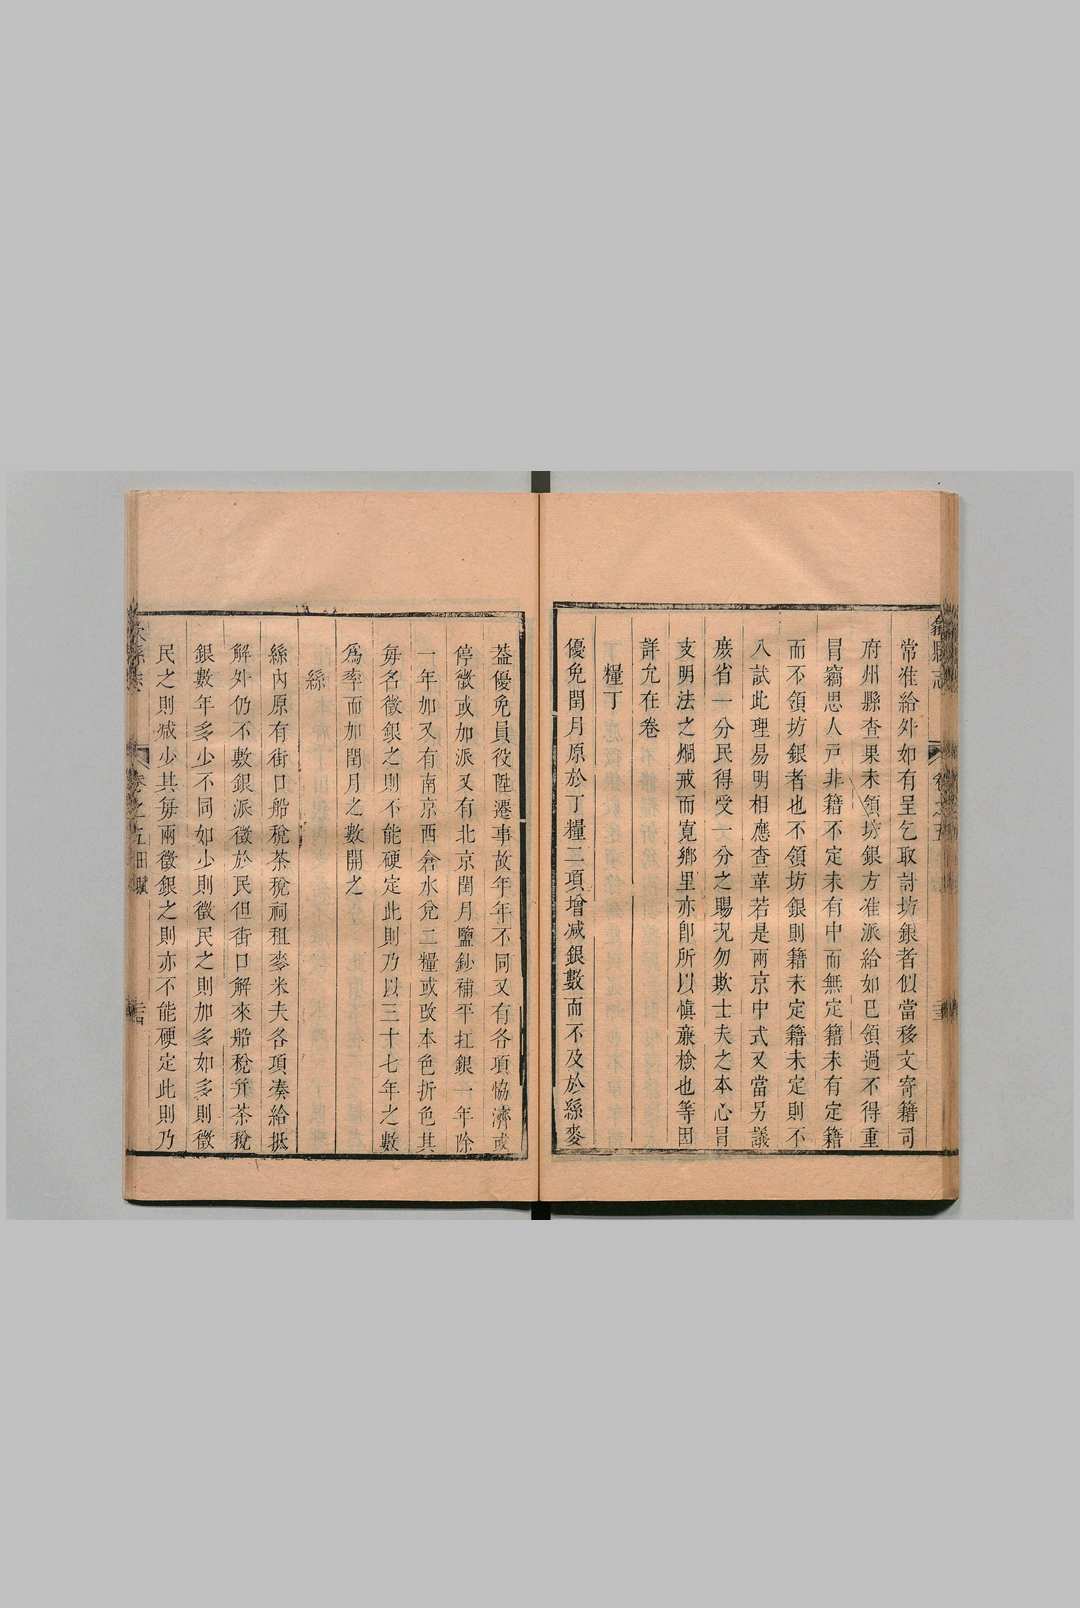 常准給外如有呈乞取討坊銀者似當移文寄籍司
府州縣查果未領坊銀方准派給如已領過不得重
冐竊思人戸非籍不定未有中而無定籍未有定籍
而不領坊銀者也不領坊銀則籍未定籍未定則不
入試此理易明相應查革若是兩京中式又當另議
庶省一分民得受一分之賜況勿欺士夫之本心冐
支明法之烱戒而寛鄉里亦卽所以愼蔗檢也等因
詳允在卷
糧丁
優免閏月原於丁糧二項增减銀數而不及於絲麥
葢優免員役陞遷事故年年不同又有各項恊濟或
停徵或加派又有北京閏月鹽鈔補平扛銀一年除
一年加又有南京西倉水兌二糧或改本色折色其
每名徵銀之則不能硬定此則乃以三十七年之數
爲率而加閏月之數開之
絲
絲内原有街口船稅茶稅祠租麥米夫各項湊給抵
解外仍不數銀派徵於民但街口解來船稅幷茶稅
銀數年多少不同如少則徵民之則加多如多則徵
民之則减少其每兩徵銀之則亦不能硬定此則乃
卷之五田賦